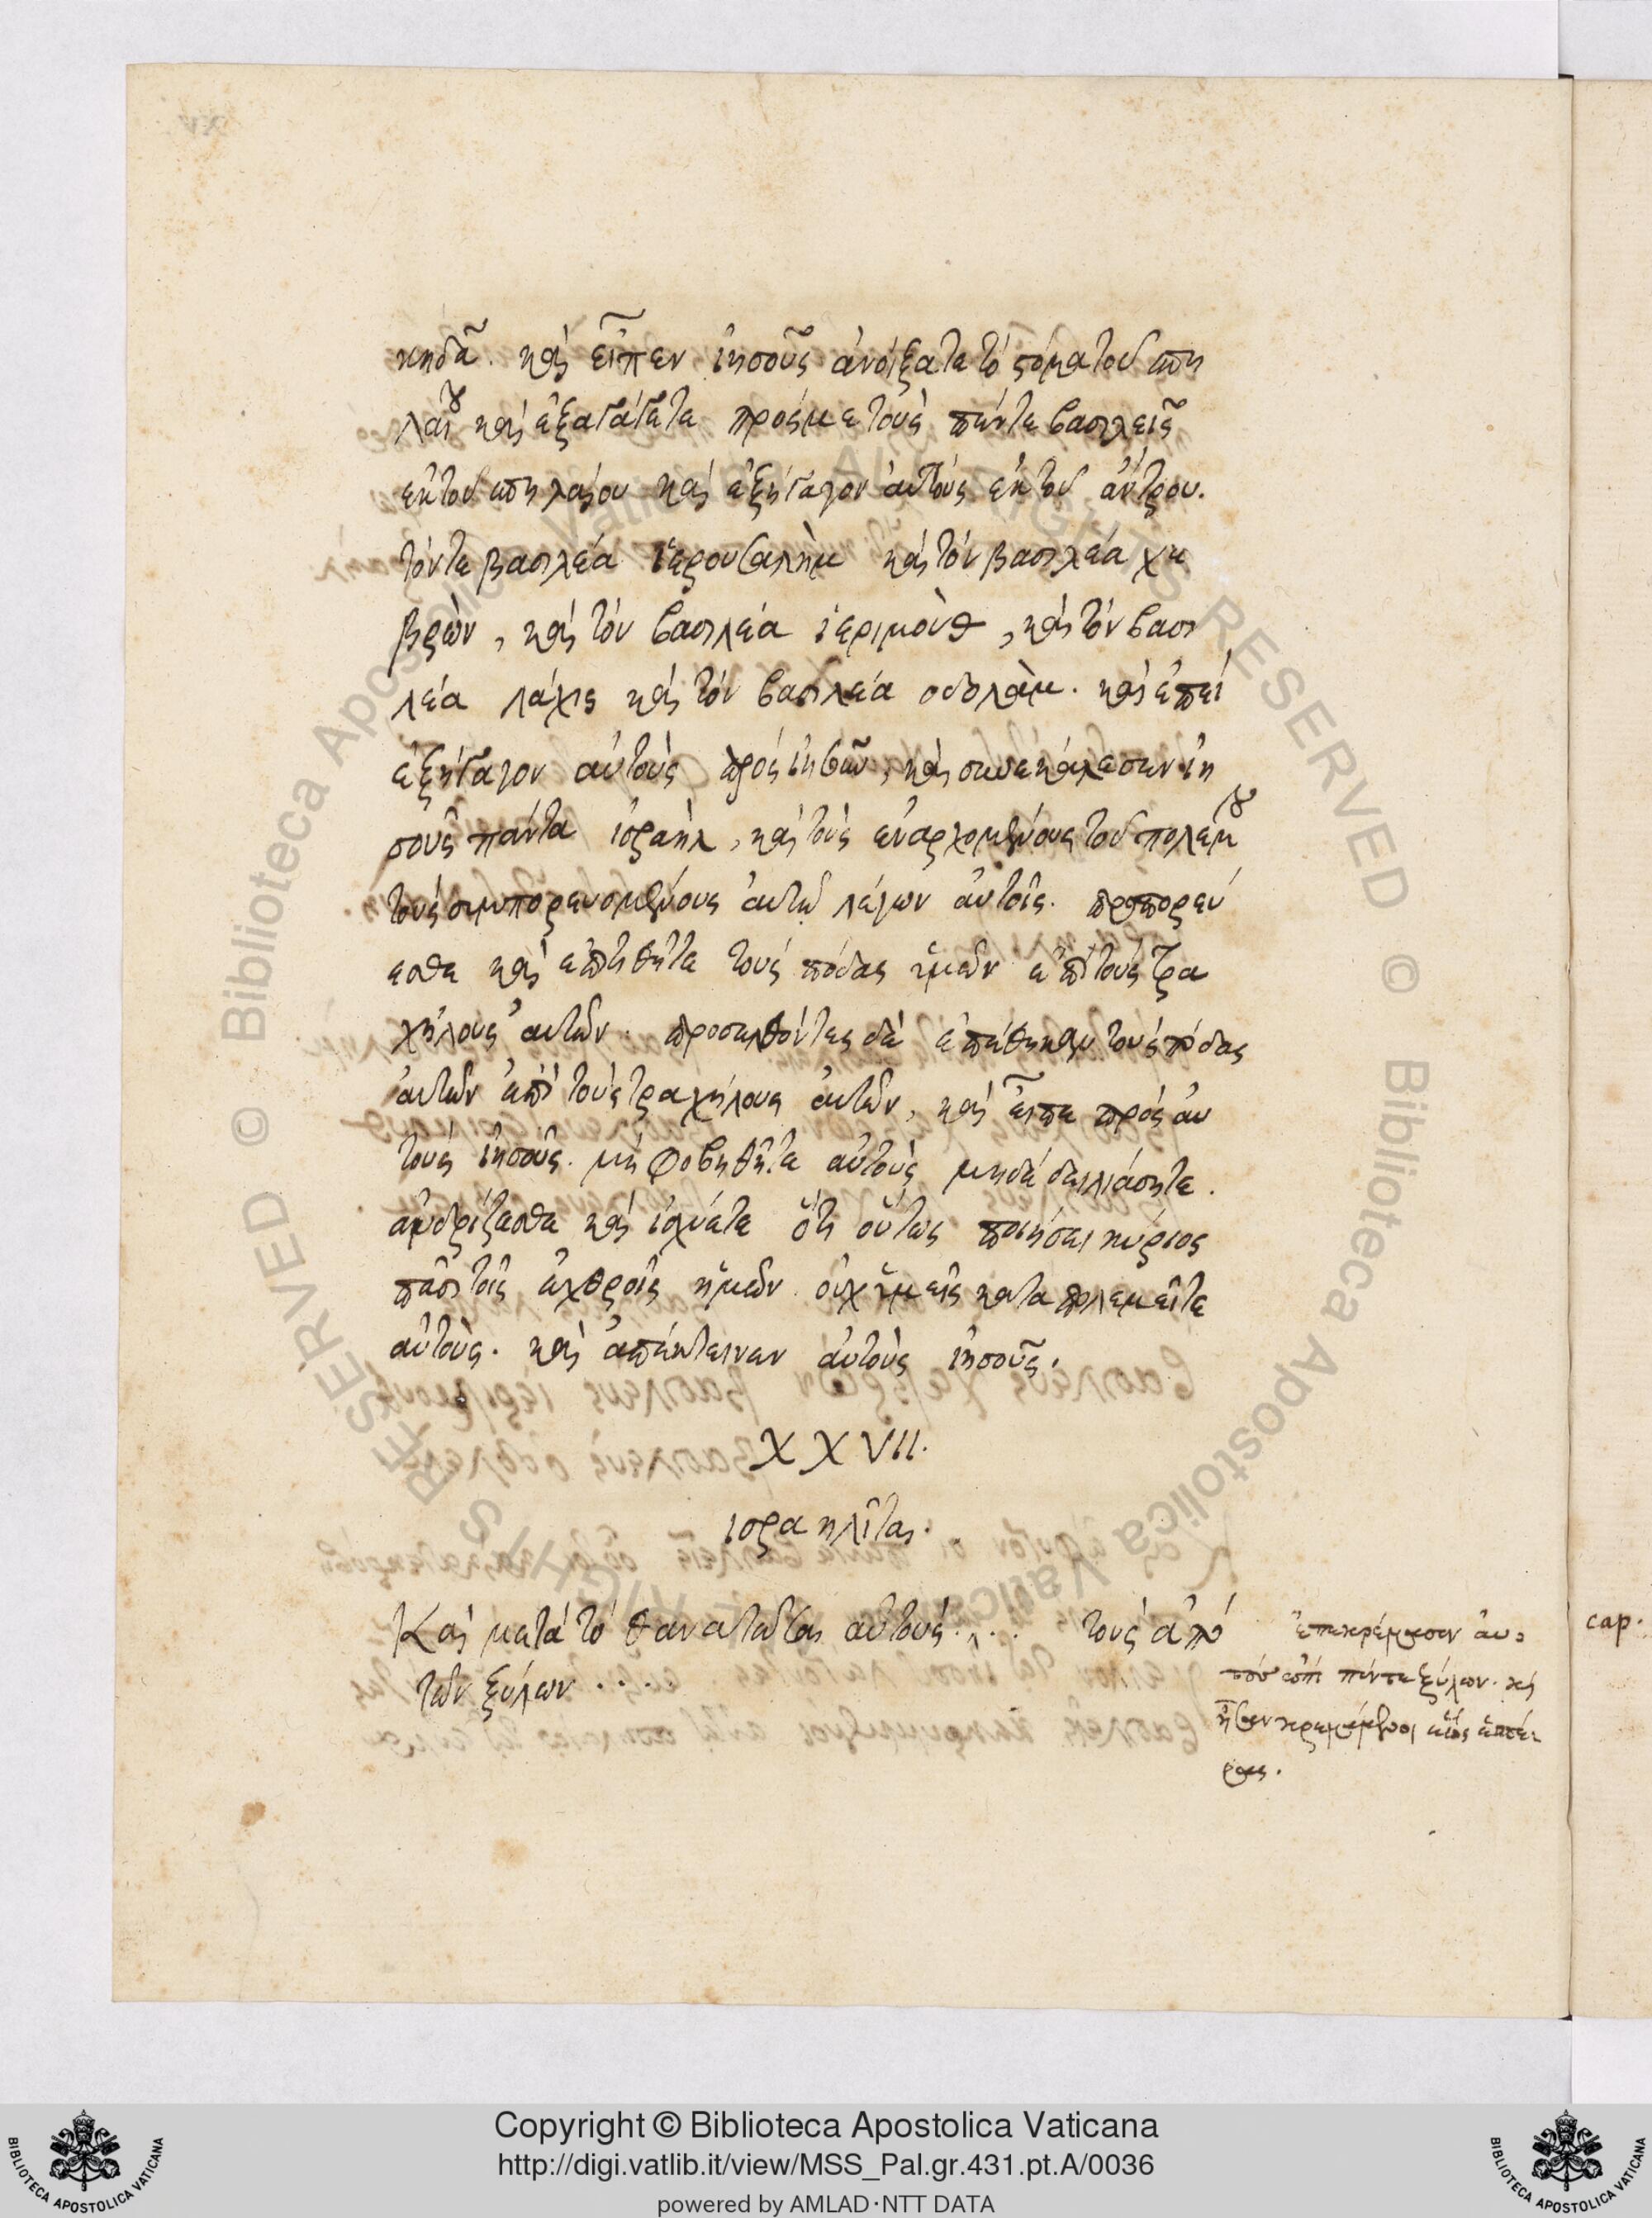 κηδᾶ. καὶ εἶπεν ἰησοῦς ἀνοίξατε τὸ στόμα τοῦ σπη
λαίου καὶ ἐξαγάγετε πρός με τοὺς πέντε βασιλεῖς
ἐκ τοῦ σπηλαίου καὶ ἐξήγαγον αὐτοὺς ἐκ τοῦ ἄντρου.
τόν τε βασιλέα ἱερουσαλὴμ καὶ τὸν βασιλέα χε
βρὼν, καὶ τὸν βασιλέα ἰεριμοὺθ, καὶ τὸν βασι
λέα λάχις καὶ τὸν βασιλέα οδολὰμ. καὶ ἐπεὶ
ἐξήγαγον αὐτοὺς πρὸς ἰησοῦν, καὶ συνεκάλεσεν ἰη
σοῦς πάντα ἰσραὴλ, καὶ τοὺς ἐναρχομένους τοῦ πολέμου
τοὺς συμπορευομένους αὐτῷ λέγων αὐτοῖς. προπορεύ
εσθε καὶ ἐπίθητε τοὺς πόδας ὑμῶν ἐπὶ τοὺς τρα
χήλους αὐτῶν. προσελθόντες δὲ ἐπέθηκαν τοὺς πόδας
αὐτῶν ἐπὶ τοὺς τραχήλους αὐτῶν, καὶ εἶπε πρὸς αὐ
τοὺς ἰησοῦς. μὴ φοβηθῆτε αὐτοὺς μηδὲ δειλιάσητε.
ἀνδρίζεσθε καὶ ἰσχύετε ὅτι οὕτως ποιήσει κύριος
πᾶσι τοῖς ἐχθροῖς ἡμῶν οὓς ὑμεῖς καταπολεμεῖτε
αὐτοὺς. καὶ ἀπέκτεινεν αὐτοὺς ἰησοῦς.
XXVII.
ισραηλῖται.
Καὶ μετὰ τὸ θανατῶσαι αὐτοὺς.... τοὺς ἀπὸ
τῶν ξύλων ....
ἐπεκρέμασεν αὐ
τοὺς ἐπὶ πέντε ξύλων. καὶ
ἦσαν κρεμάμενοι ἕως ἑσπέ
ρας.
cap.
Copyright © Biblioteca Apostolica Vaticana
http://digi.vatlib.it/view/MSS_Pal.gr.431.pt.A/0036
powered by AMLAD·NTT DATA
BIBLIOTECA APOSTOLICA VATICANA
BIBLIOTECA APOSTOLICA VATICANA
© Biblioteca Apostolica Vaticana ALL RIGHTS RESERVED
© Biblioteca Apostolica Vaticana ALL RIGHTS RESERVED